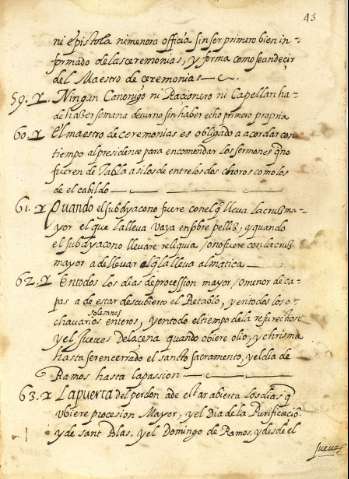 43
ni epistola ni menora officia sin ser primero bien in-
formado de las ceremonias, y forma como se an decir
del Maestro de ceremonias
59. x. Ningun Canonigo ni Racionero ni Capellan ha-
de haser semana de uno sin haber echo primero propria
60. x El maestro de ceremonias es obligado a acordar con
tiempo al presidente para encomendar los sermones q no
fueren de Tabla asi los de entre los dos choros como los
de el cabildo
61. x Quando el subdyacono fuere con el q lleva la cruz ma-
yor el que la lleva vaya en sobre pelliz, y quando
el subdyacono llevare reliquia, o no fuere con la cruz
mayor a de llevar el q la lleva almatica
62. x En todos los dias de procession mayor, o menor de ca-
pas a de estar descubierto el Retablo, y en todos los o-
solamnes
chavarios enteros, y en todo el tiempo de la resurechion
y el Jueves de la cena quando obiere olio, y chrisma
hasta ser encerrado el sancto sacramento, y el dia de
Ramos hasta la passion
63. x La puerta del perdon a de estar abierta los dias q
ubiere procesion Mayor, y el Dia de la Purificació
y de sant Blas, y el Domingo de Ramos, y desde el
Jueves